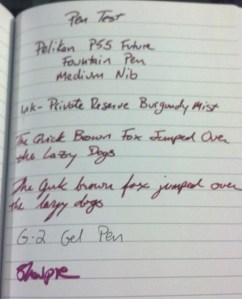 Pen Test
Pelikan P55 Future
Fountain Pen
Medium Nib
Ink - Private Reserve Burgundy Mist
The Quick Brown Fox Jumped Over
the Lazy Dogs
The Quick brown fox jumped over
the lazy dogs
G-2 Gel Pen
Sharpie